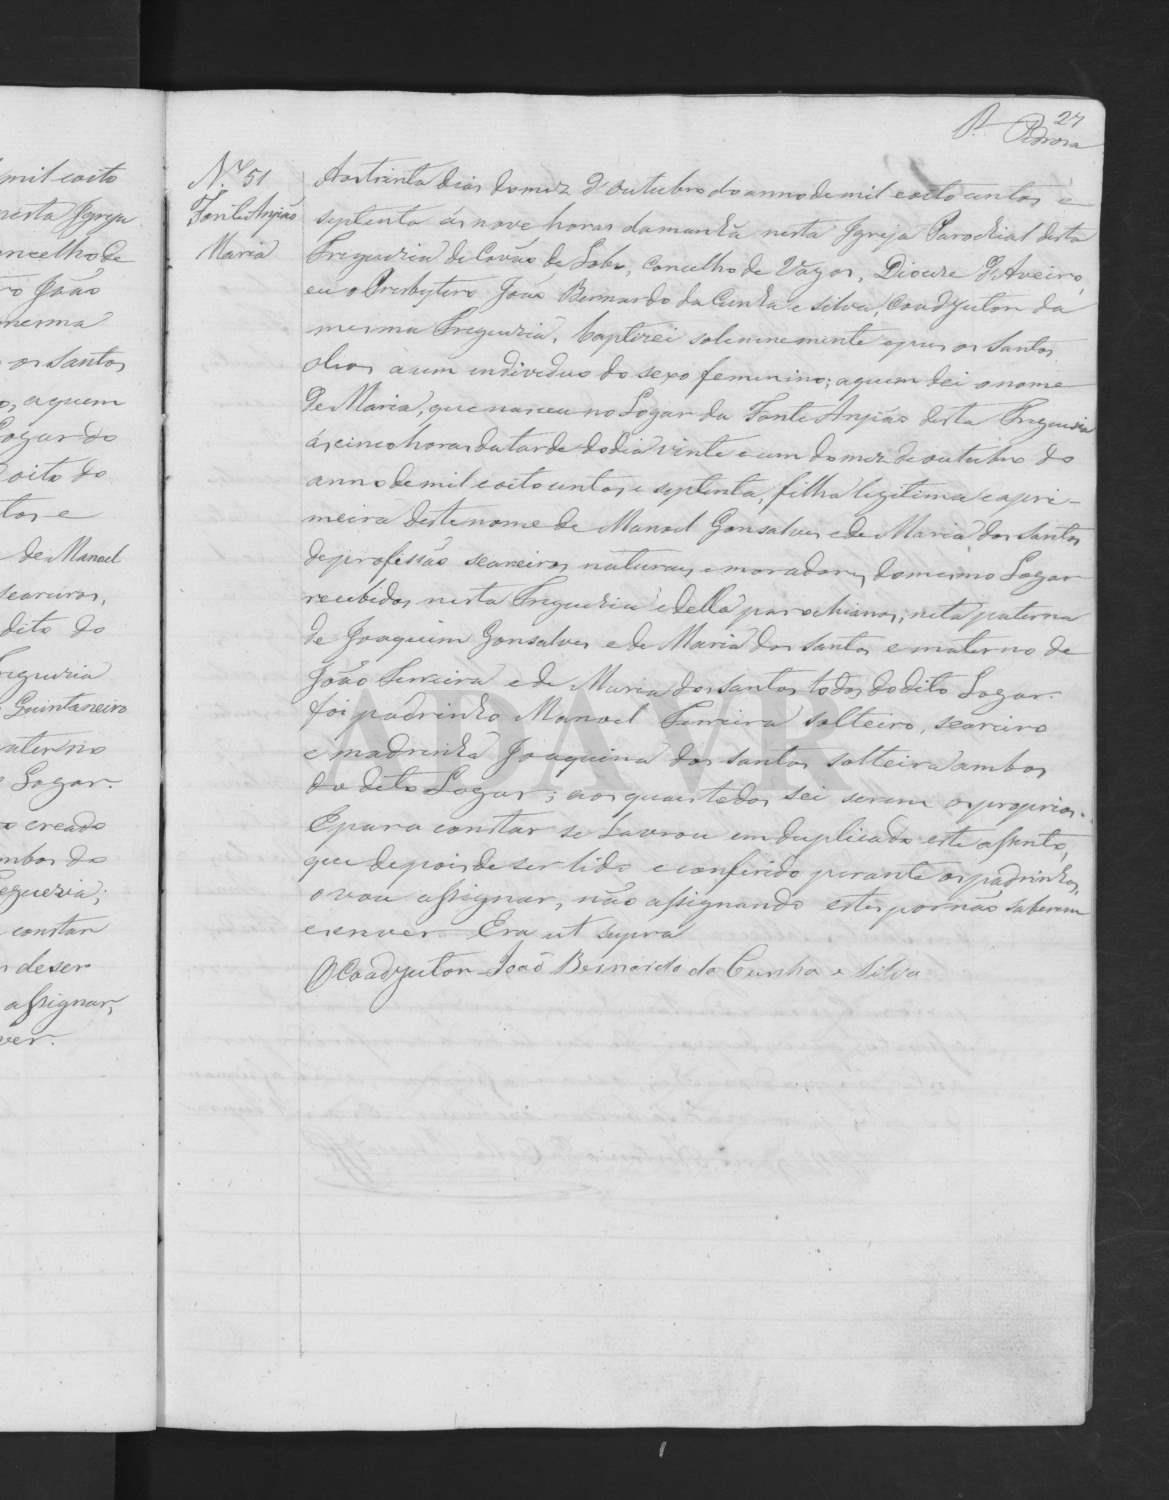 27
P. Pedrosa
N.º 51
Fonte Anjião
Maria
Aos trinta dias do mez d'outubro do anno de mil e oito centos e
septenta ás nove horas da manhã nesta Igreja Parochial desta
Freguezia de Covão de Lobo, Concelho de Vagos, Diocese d'Aveiro,
eu o Presbytero João Bernardo da Cunha e Silva, Coadjutor da
mesma Freguezia, baptizei solemnemente e puz os Santos
oleos a um individuo do sexo femenino; a quem dei o nome
de Maria, que nasceu no Logar da Fonte Anjião desta Freguezia
ás cinco horas da tarde do dia vinte e um do mez de outubro do
anno de mil e oito centos e septenta, filha legitima e a pri-
meira deste nome de Manoel Gonsalves e de Maria dos Santos
de profissão seareiros naturaes e moradores do mesmo Logar
recebidos nesta Freguezia e della parochianos; neta paterna
de Joaquim Gonsalves e de Maria dos Santos e materno de
João Ferreira e de Maria dos Santos todos do dito Logar.
foi padrinho Manoel Ferreira solteiro, seareiro
e madrinha Joaquina dos Santos solteira ambos
do dito Logar; aos quaes todos sei serem os proprios.
E para constar se lavrou em duplicado este assento,
que depois de ser lido e conferido perante os padrinhos,
o vou assignar, não assignando estes por não saberem
escrever. Era ut supra
O Coadjutor João Bernardo da Cunha e Silva
mil e oito
nesta Igreja
oncelho de
João
mesma
os Santos
a quem
Logar do
oito do
tos e
de Manoel
seareiros,
dito do
reguezia
Quintaneiro
materno
Logar.
creado
mbos do
eguezia;
constar
de ser
assignar,
ver.
ADAVR